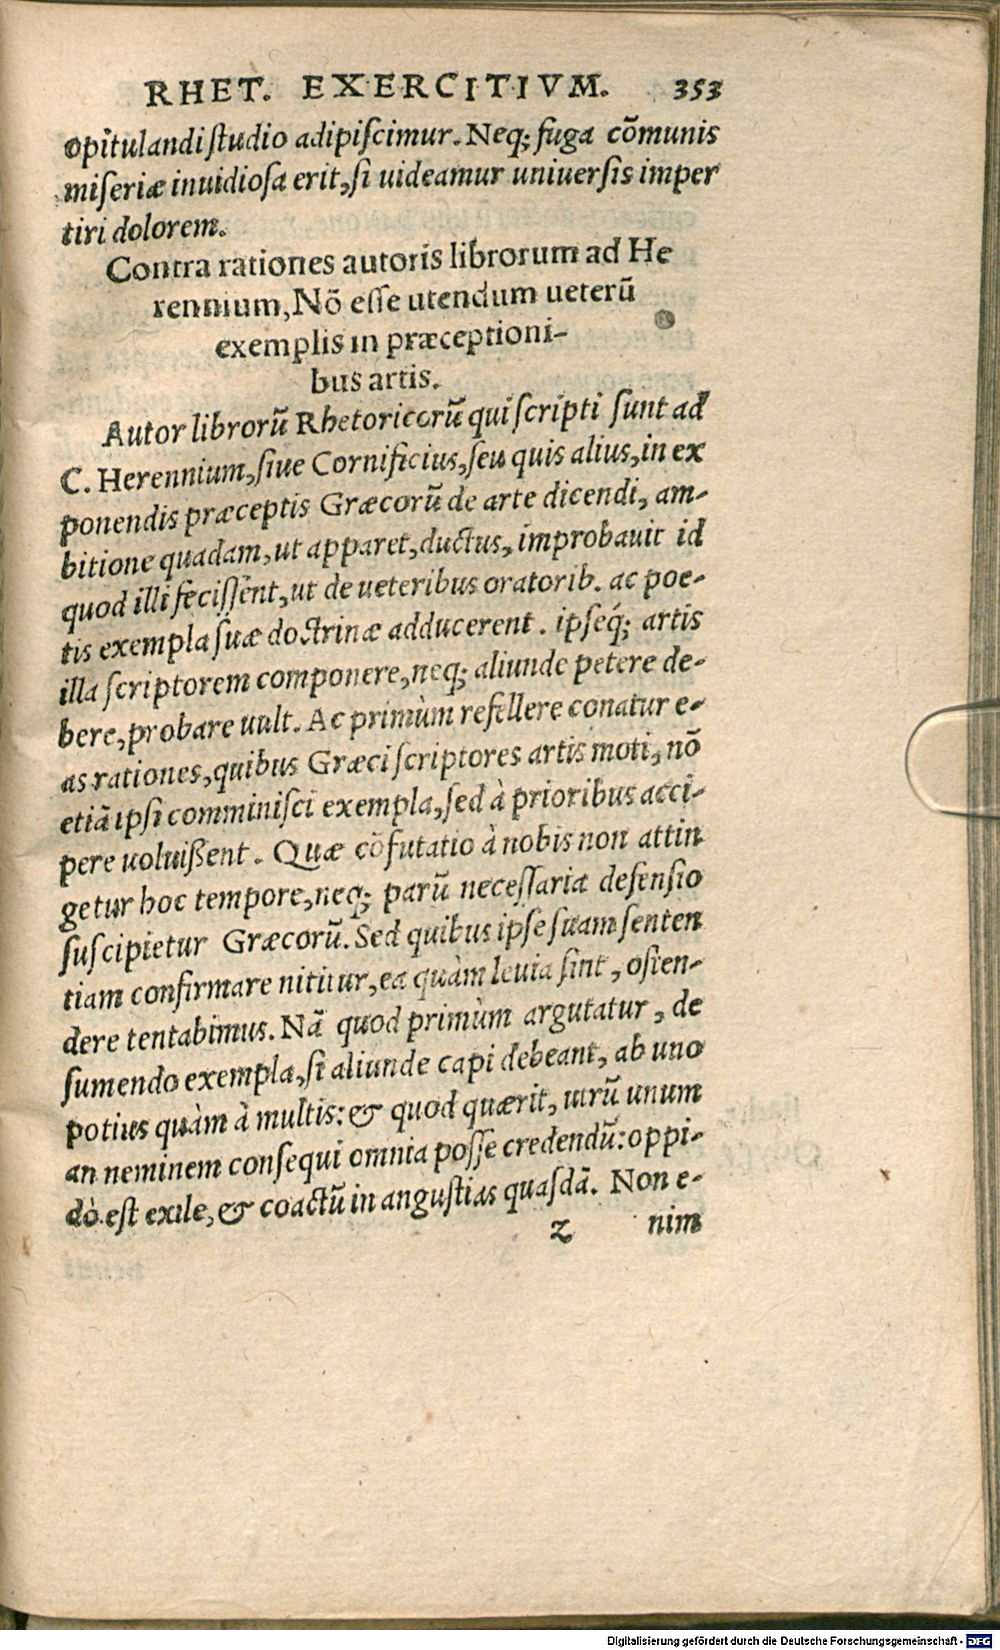 RHET. EXERCITIVM. 353
opitulandi ſtudio adipiſcimur. Neq; fuga cõmunis
miſeriæ inuidioſa erit, ſi uideamur uniuerſis imper
tiri dolorem.
Contra rationes autoris librorum ad He
rennium, Nõ eſſe utendum ueterũ
exemplis in præceptioni-
bus artis.
Autor librorũ Rhetoricorũ qui ſcripti ſunt ad
C. Herennium, ſiue Cornificius, ſeu quis alius, in ex
ponendis præceptis Græcorũ de arte dicendi, am-
bitione quadam, ut apparet, ductus, improbauit id
quod illi feciſſent, ut de ueteribus oratorib. ac poe-
tis exempla ſuæ doctrinæ adducerent. ipſeq́; artis
illa ſcriptorem componere, neq; aliunde petere de-
bere, probare uult. Ac primùm refellere conatur e-
as rationes, quibus Græci ſcriptores artis moti, nõ
etiã ipſi comminiſci exempla, ſed à prioribus acci-
pere uoluißent. Quæ cõfutatio à nobis non attin
getur hoc tempore, neq; parũ neceſſaria defenſio
ſuſcipietur Græcorũ. Sed quibus ipſe ſuam ſenten
tiam confirmare nititur, ea quàm leuia ſint, oſten-
dere tentabimus. Nã quod primùm argutatur, de
ſumendo exempla, ſi aliunde capi debeant, ab uno
potius quàm à multis: & quod quærit, utrũ unum
an neminem conſequi omnia poſſe credendũ: oppi-
dò eſt exile, & coactũ in anguſtias quaſdã. Non e-
z nim
Digitalisierung gefördert durch die Deutsche Forschungsgemeinschaft - DFG